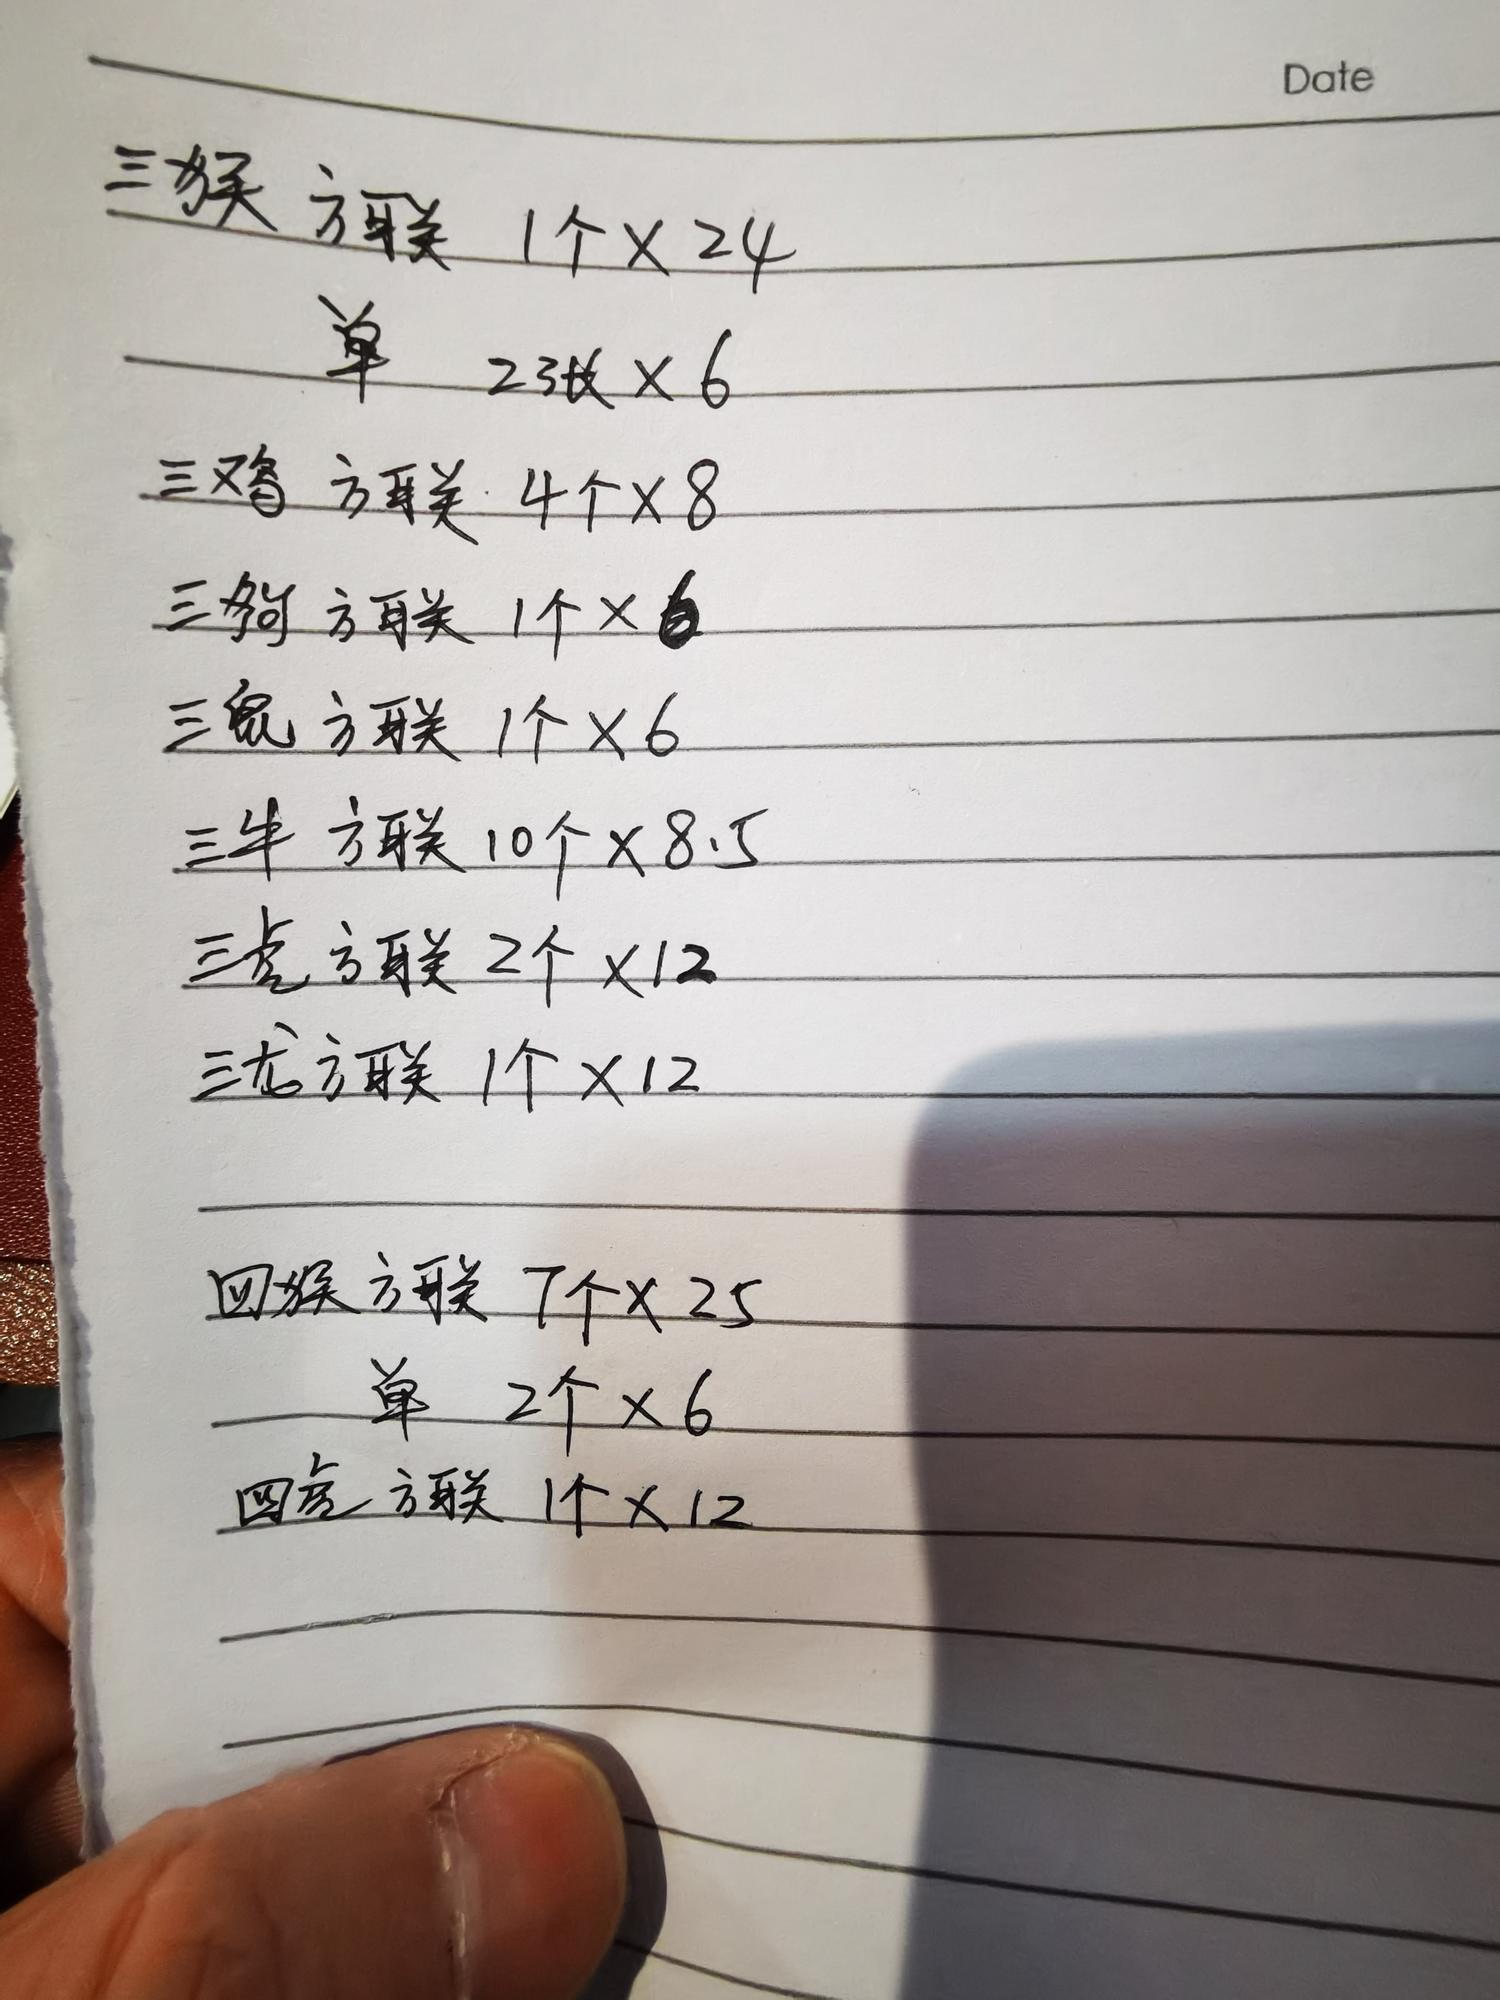 Date
三猴 方联 1个 X 24
单 23张 X 6
三鸡 方联 4个 X 8
三狗 方联 1个 X 6
三鼠 方联 1个 X 6
三牛 方联 10个 X 8.5
三虎 方联 2个 X 12
三龙 方联 1个 X 12
四猴 方联 7个 X 25
单 2个 X 6
四虎 方联 1个 X 12